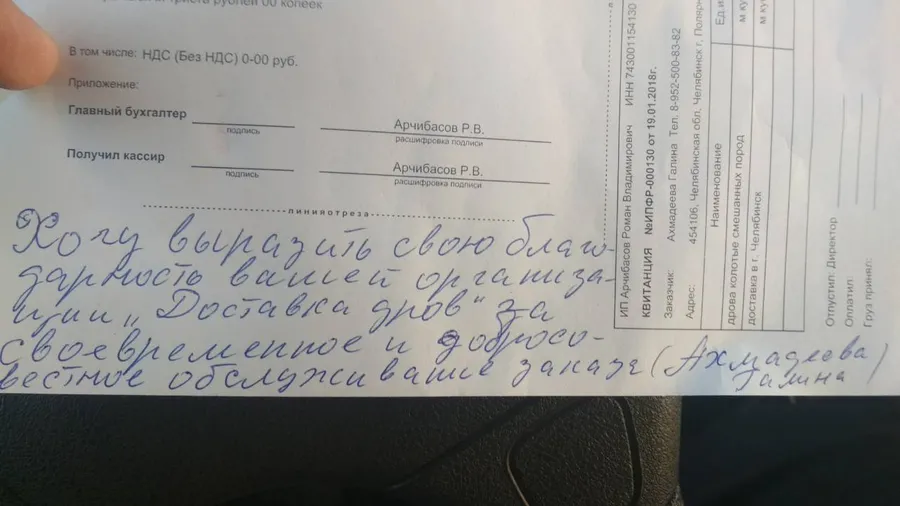 триста рублей 00 копеек
В том числе: НДС (Без НДС) 0-00 руб.
Приложение:
Главный бухгалтер
подпись
Арчибасов Р.В.
расшифровка подписи
Получил кассир
подпись
Арчибасов Р.В.
расшифровка подписи
линия отреза
Хочу выразить свою благо-
дарность вашей организа-
ции „Доставка дров“ за
своевременное и добросо-
вестное обслуживание заказа (Ахмадеева
Галина)
ИП Арчибасов Роман Владимирович ИНН 743001154130
КВИТАНЦИЯ №ИПФР-000130 от 19.01.2018г.
Заказчик: Ахмадеева Галина Тел. 8-952-500-83-82
Адрес: 454106, Челябинская обл, Челябинск г,
Наименование Ед.и
дрова колотые смешанных пород м ку
доставка в г. Челябинск м ку
Отпустил: Директор
Оплатил:
Груз принял: